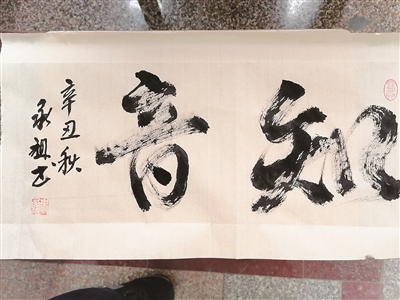 知音
辛丑秋
承祖书